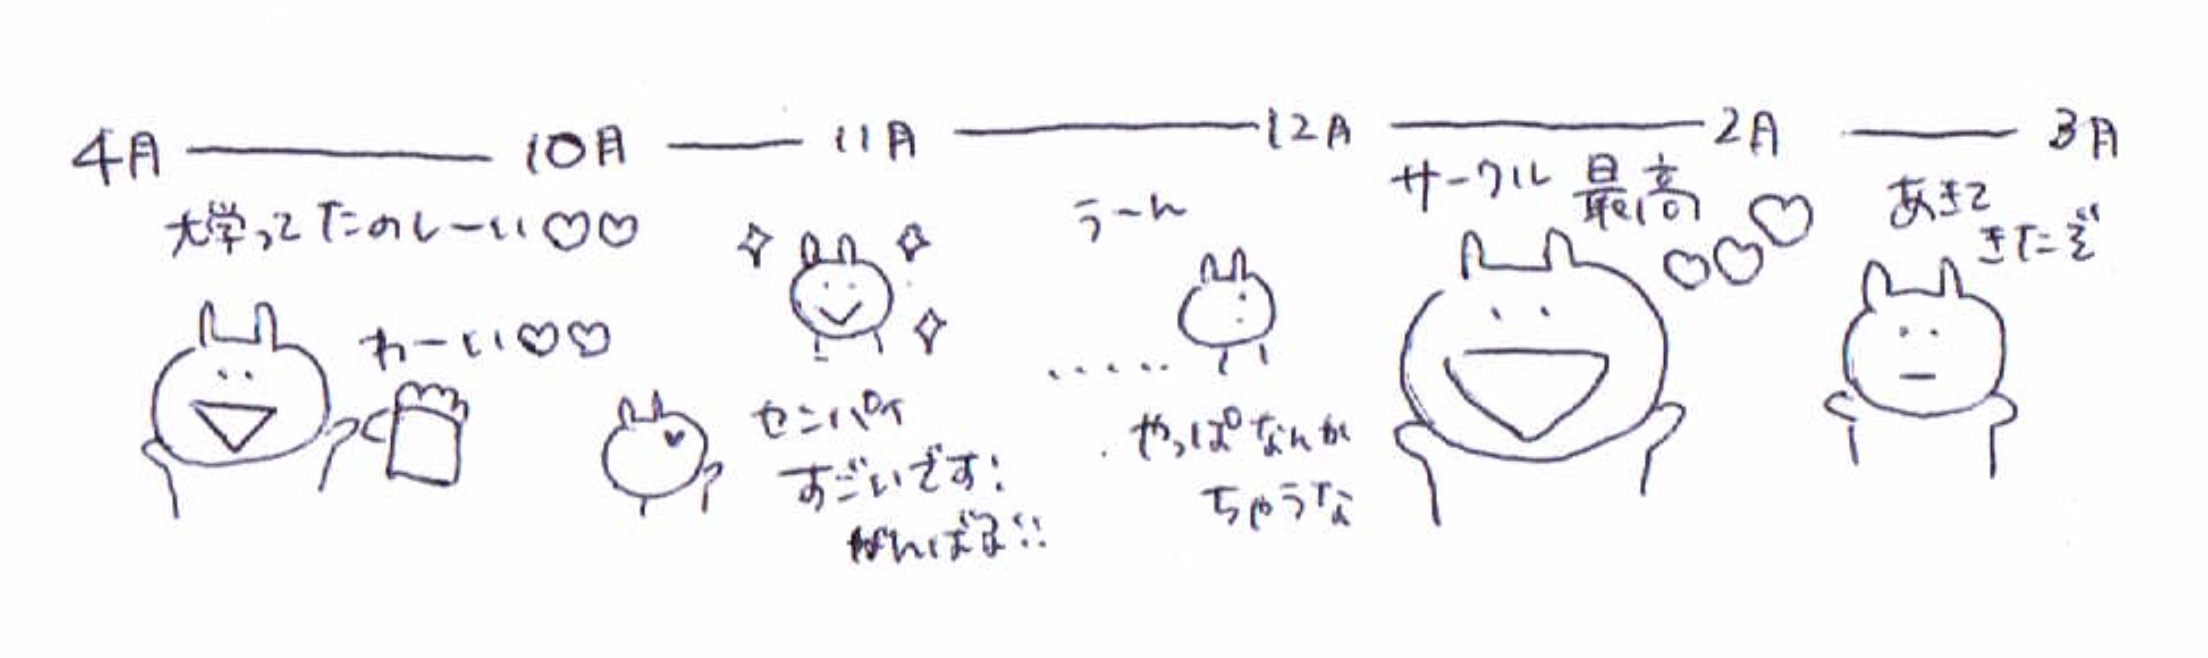 4月 10月 11月 12月 2月 3月
大学ってたのしーい♡♡
わーい♡♡
センパイ
すごいです!
がんばる!!
うーん
.....
やっぱなんか
ちゃうな
サークル 最高
♡♡♡
あきて
きたぞ